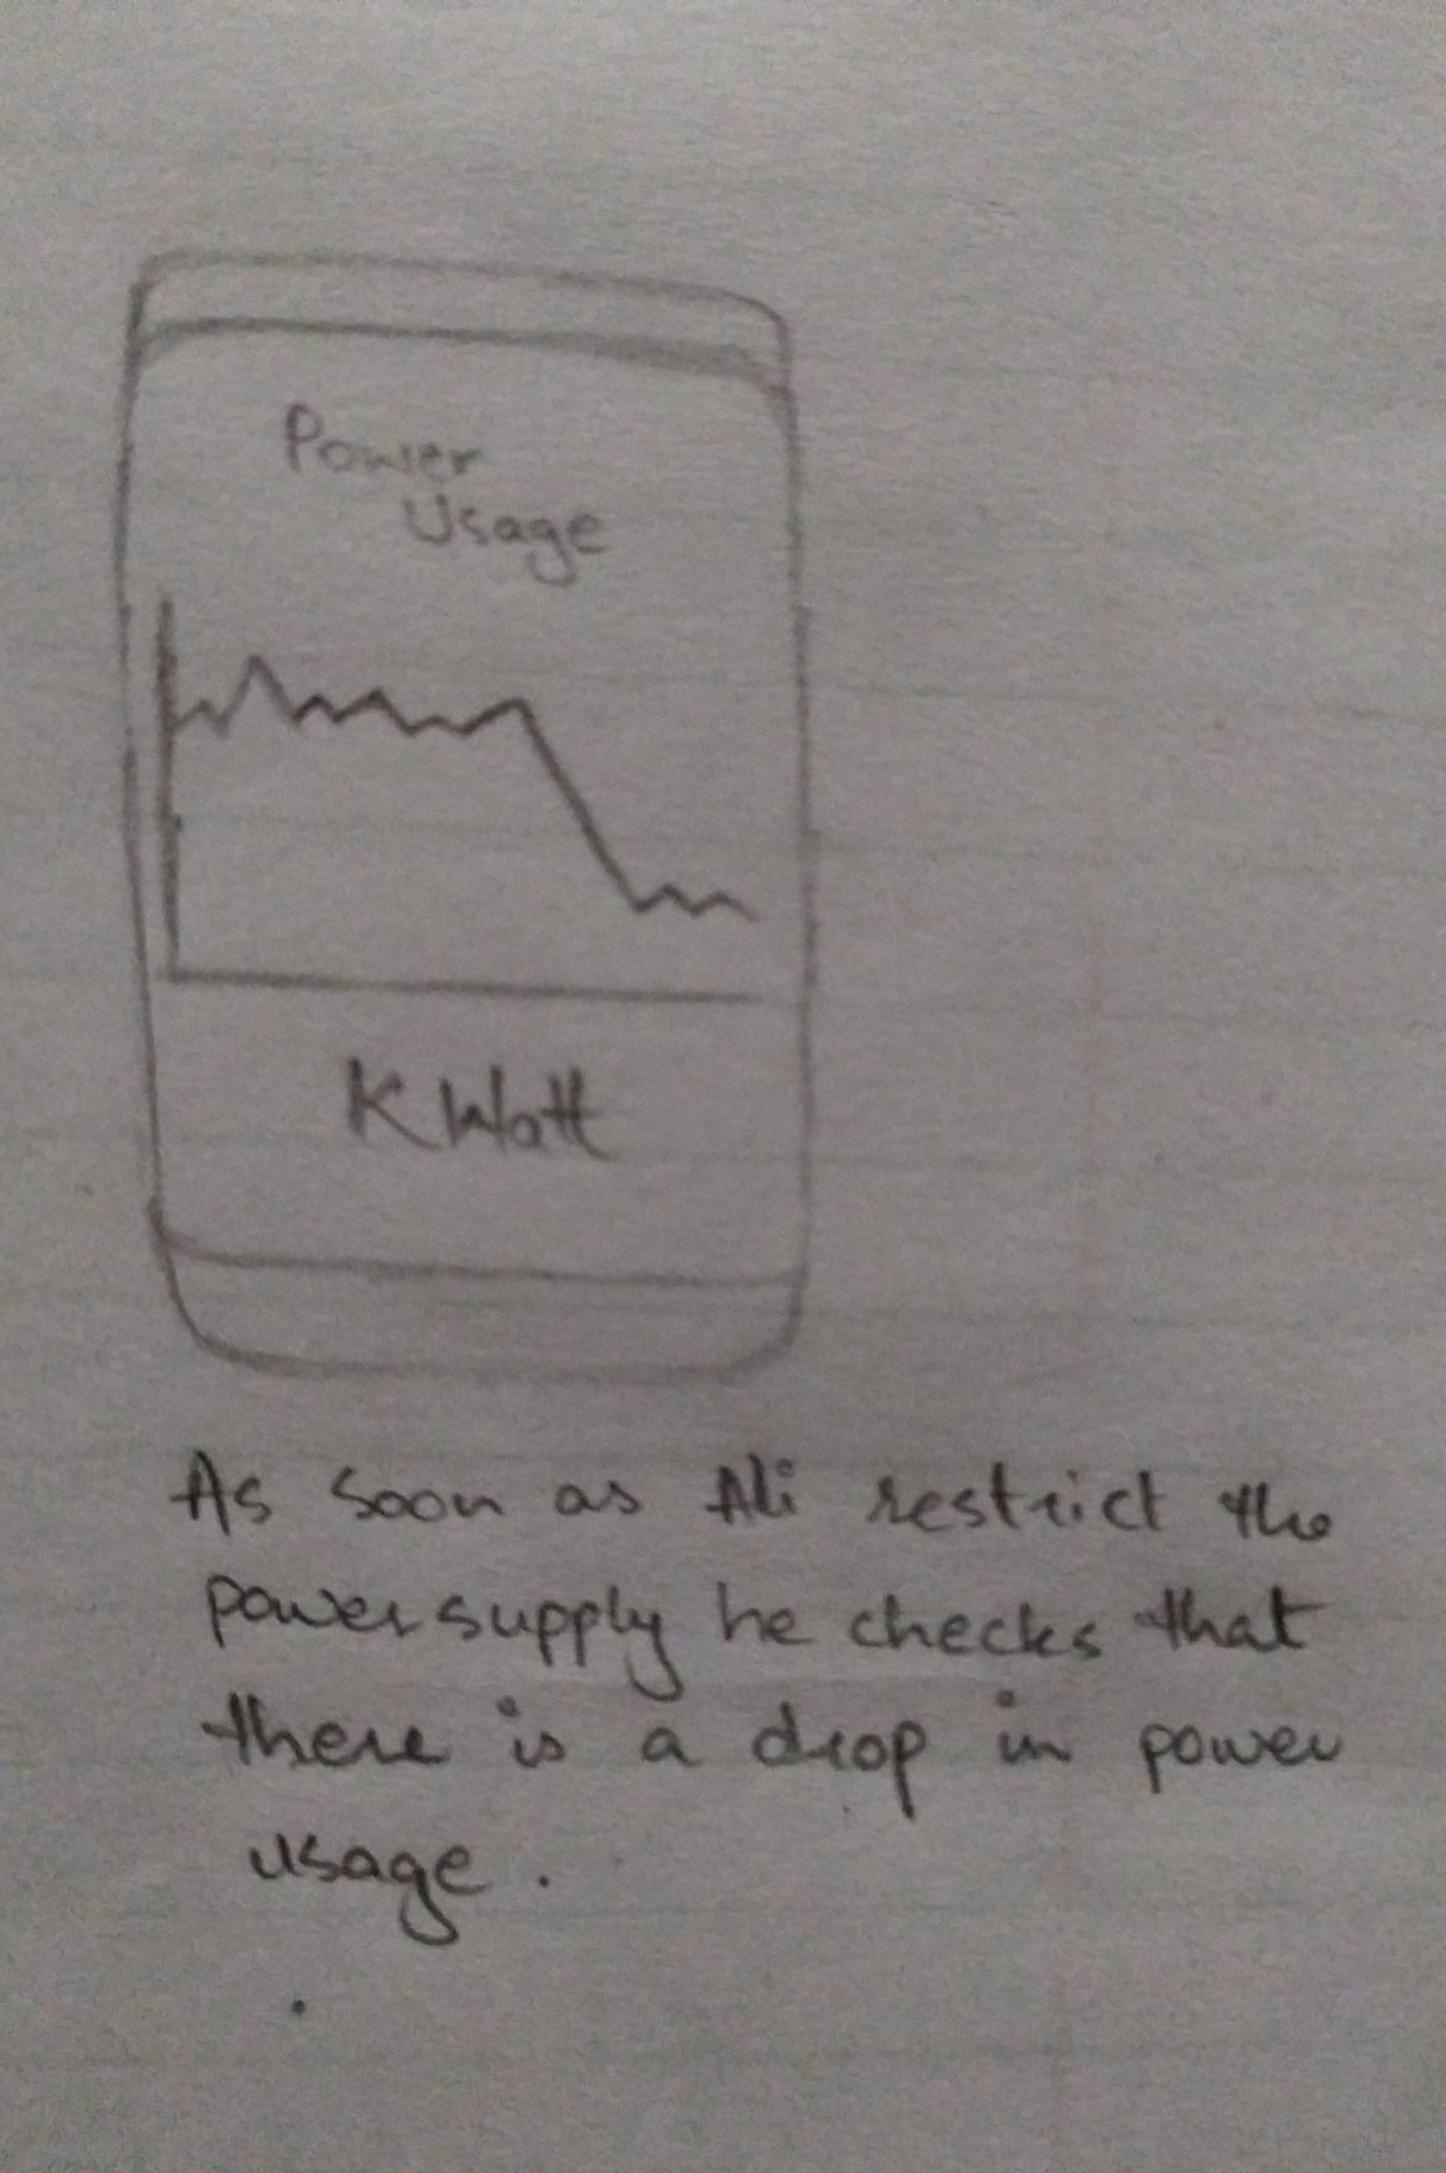 Power
Usage
K Watt
As soon as Ali restrict the
power supply he checks that
there is a drop in power
usage.